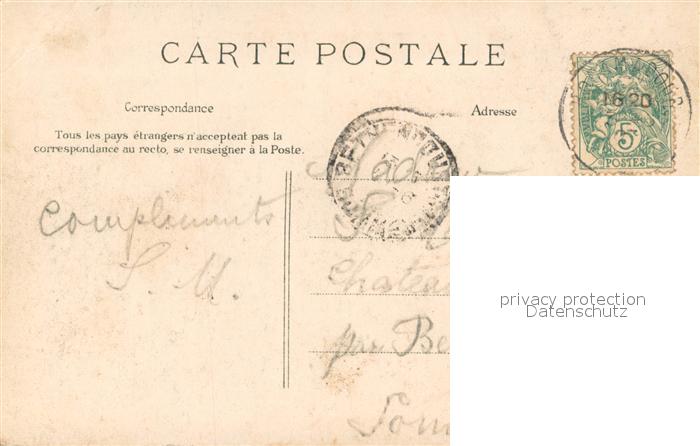 CARTE POSTALE
Correspondance
Adresse
Tous les pays étrangers n'acceptent pas la
correspondance au recto, se renseigner à la Poste.
18 20
5
POSTES
Madame
Compliments
S. M.
Chateau
par Be
Som
privacy protection
Datenschutz